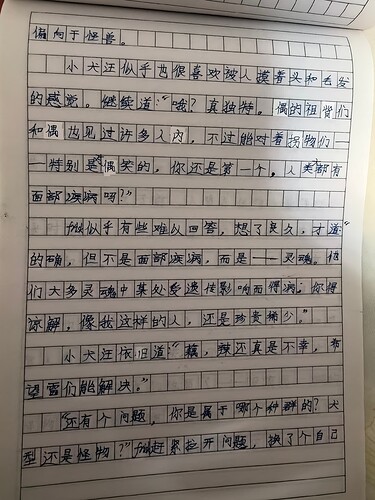 偏向于怪兽。
小犬汪似乎也很喜欢被人摸着头和毛发
的感觉。继续道："哦？真独特。偶的祖背们
和偶也见过许多人肉，不过能对着拐物们—
—特别是偶笑的，你还是第一个。人类都有
面部疾病吗？"
ta似乎有些难以回答，想了良久，才道"
的确，但不是面部疾病，而是——灵魂。他
们大多灵魂中某处受遗传影响而得病。你得
谅解，像我这样的人，还是珍贵稀少。"
小犬汪依旧道："，还真是不幸，希
望雪们能解决。"
"还有个问题，你是属于哪个种群的？犬
型还是怪物？"ta赶紧拉开问题，换了个自己